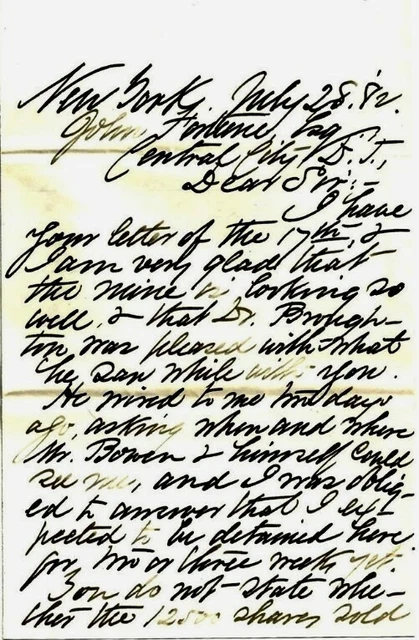 New York, July 28. '82.
John Fortune, Esq.,
Central City, D. T.,
Dear Sir:-
I have
your letter of the 17th, &
I am very glad that
the mine is looking so
well, & that Dr. Brough-
ton, was pleased with what
he saw while with you.
He wired to me two days
ago, asking when and where
Mr. Bowen & himself could
see me, and I was oblig-
ed to answer that I ex-
pected to be detained here
for two or three weeks yet.
You do not state whe-
ther the 12500 shares sold